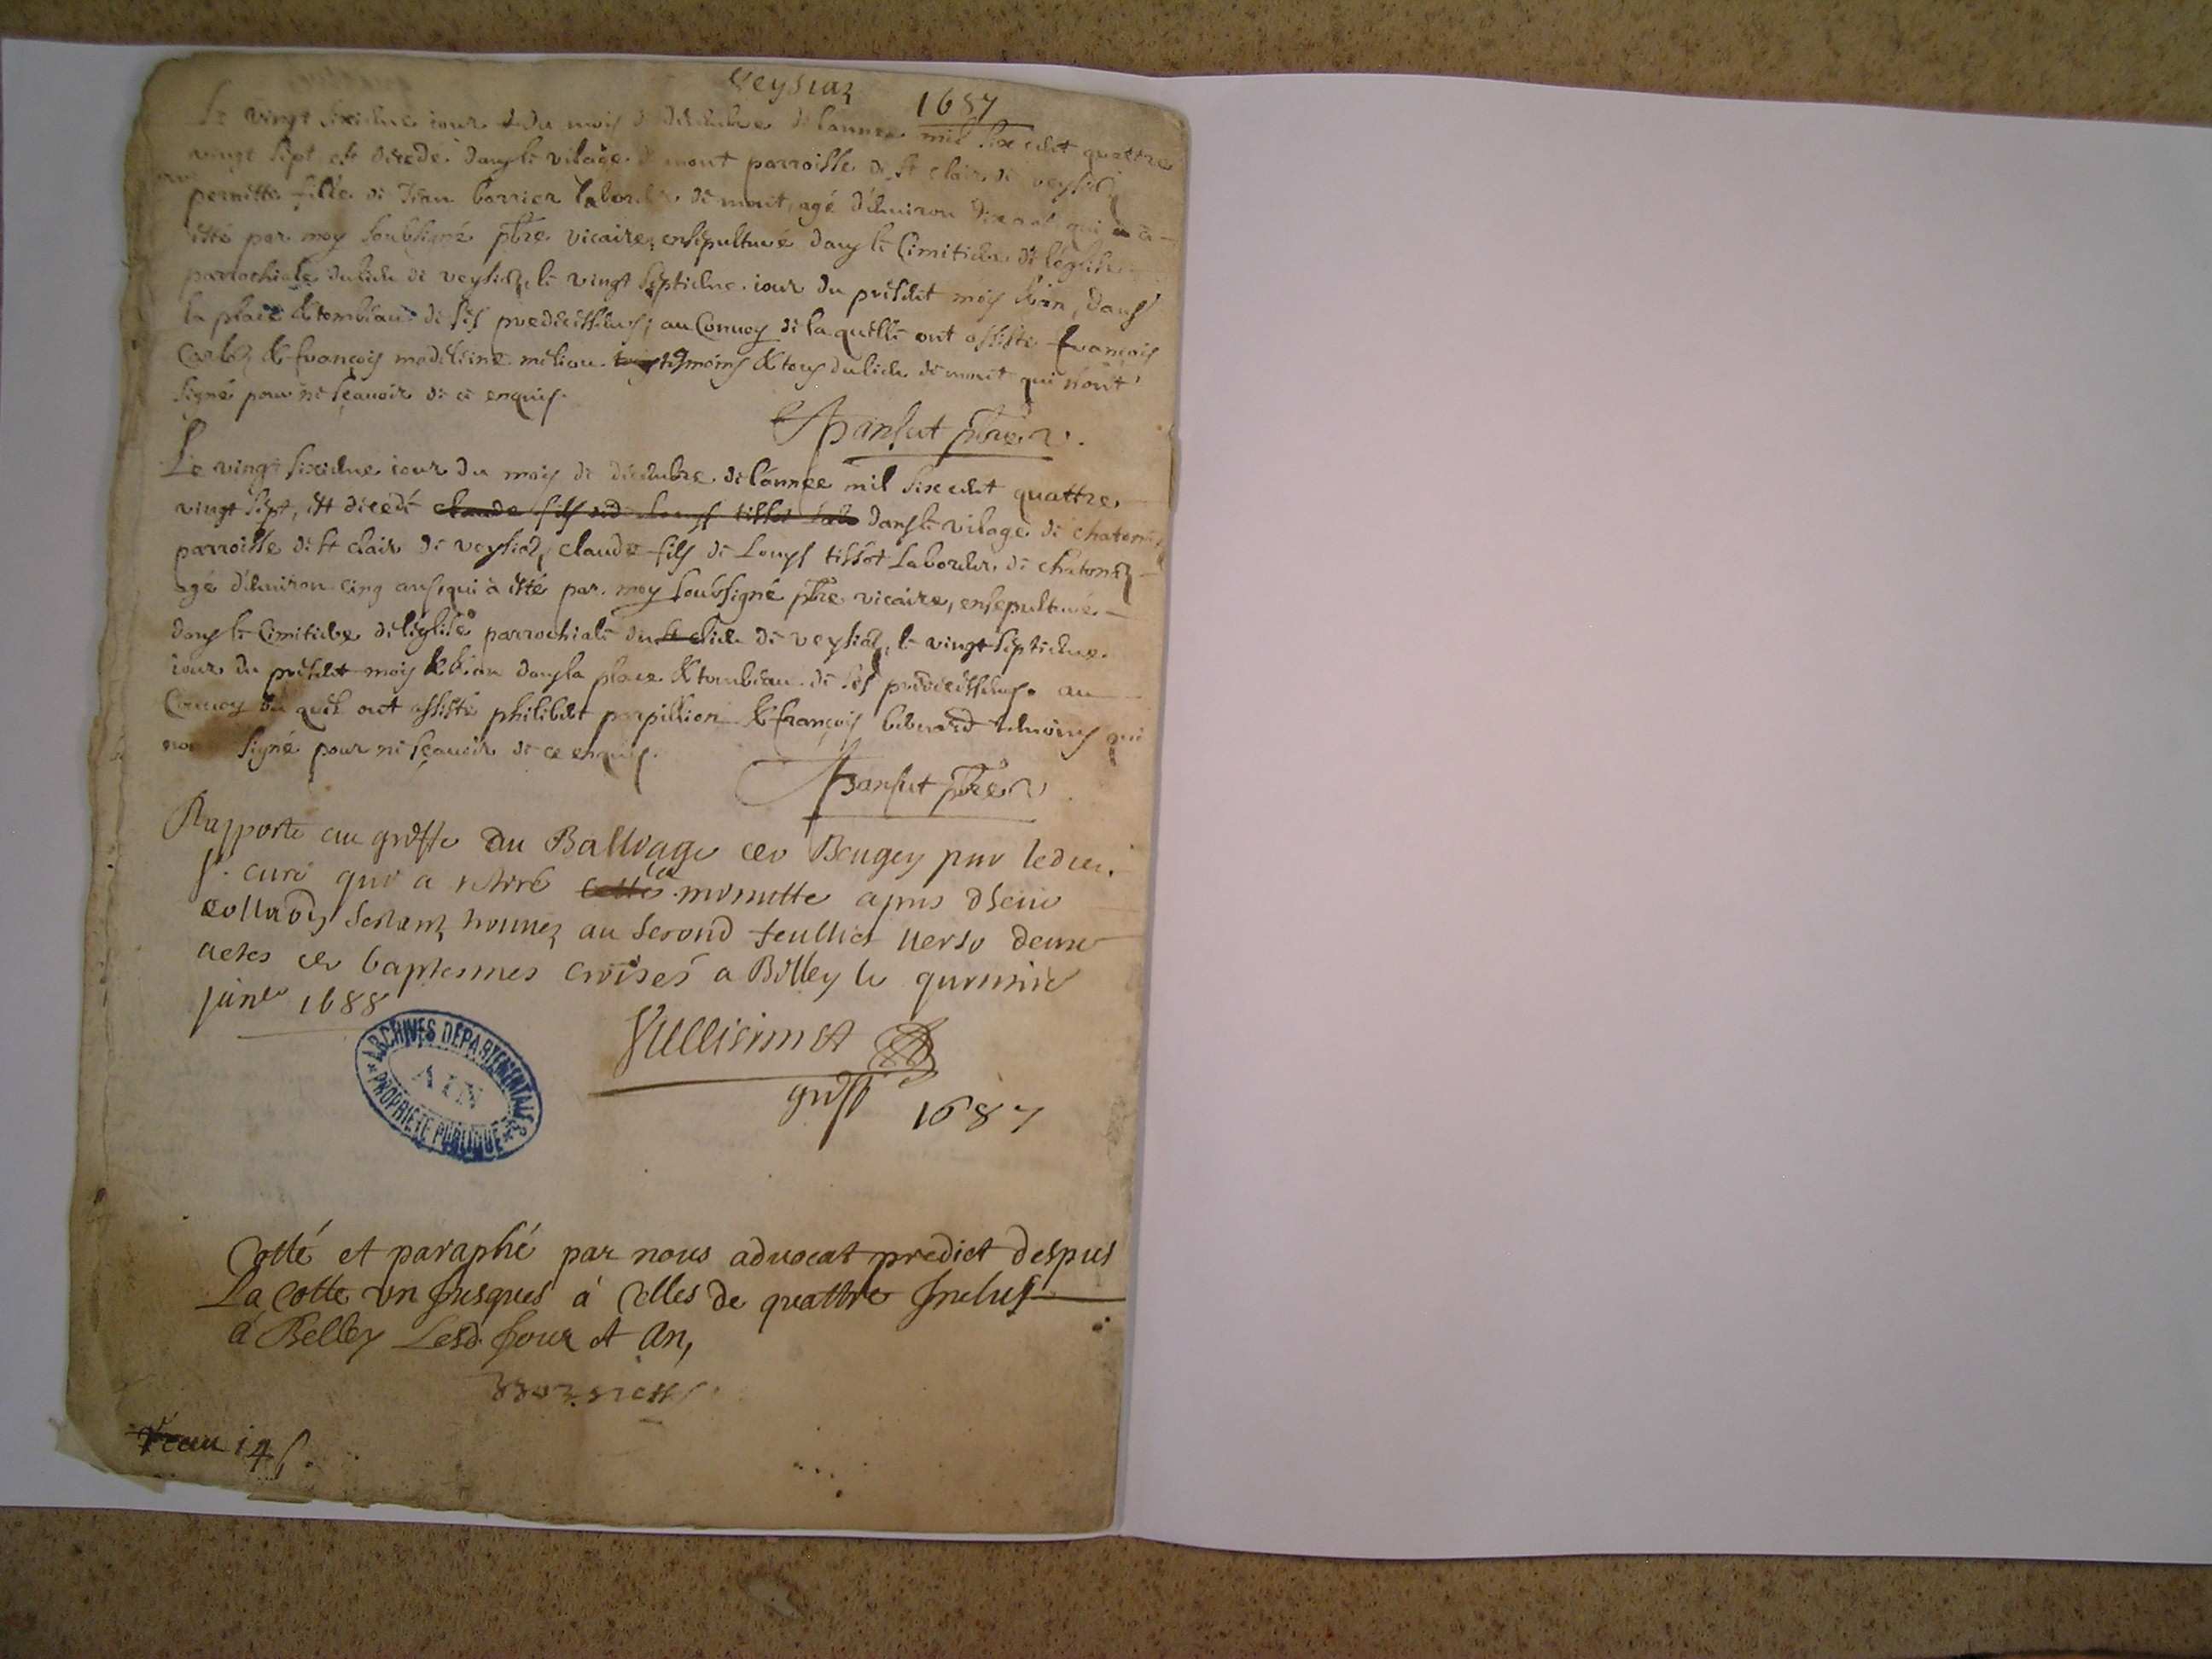 Veysiaz
1687
Le vingt sixieme iour du mois de decembre de lannee mil six cent quattre
vingt sept est decedé dans le vilage de mont parroisse de st clair de veysiaz
pernette fille de Jean borrier laborier de mont, agé d'enuiron dix ans qui a
esté par moy soubsigné pbre vicaire, ensepulturé dans le Cimitiere de léglise
parrochiale dulieu de veysiaz, le vingt septieme iour du present mois & an, dans
la place & tombeau de ses predecesseurs, au Conuoy de laquelle ont assisté françois
& françois tesmoins & tous dulieu de mont qui n'ont
signé pour ne sçauoir de ce enquis.
pbre
Le vingt sixieme iour du mois de decembre de lannee mil six cent quattre
vingt sept, est decedé claude fils dans le vilage de chatonaz
parroisse de st clair de veysiaz, claude fils de Louys tissot laborier de chatonaz
agé d'enuiron cinq ans, qui à esté par moy soubsigné pbre vicaire, ensepulturé
dans le Cimitiere de léglise parrochiale du lieu de veysiaz, le vingt septieme
iour du present mois & an dans la place & tombeau de ses predecesseurs. au
Conuoy du quel ont assisté philibert parpillion & françois bernard temoins qui
signé pour ne sçauoir de ce enquis.
pbre
Rapporté au greffe du Balliage de Beugey par ledit
sr. curé qui a retiré cette la minutte apres
collaon sestant trouuez au second feullict verso deux
actes de baptesmes croisés a Belley le
janer 1688
Vulliermet
greff
1687
ARCHIVES DEPARTEMENTALES
AIN
PROPRIETE PUBLIQUE
Cotté et paraphé par nous aduocat predict despuis
La Cotte vn Jusques à Celles de quattre Inclus
à Belley Lesd. Jour et An,